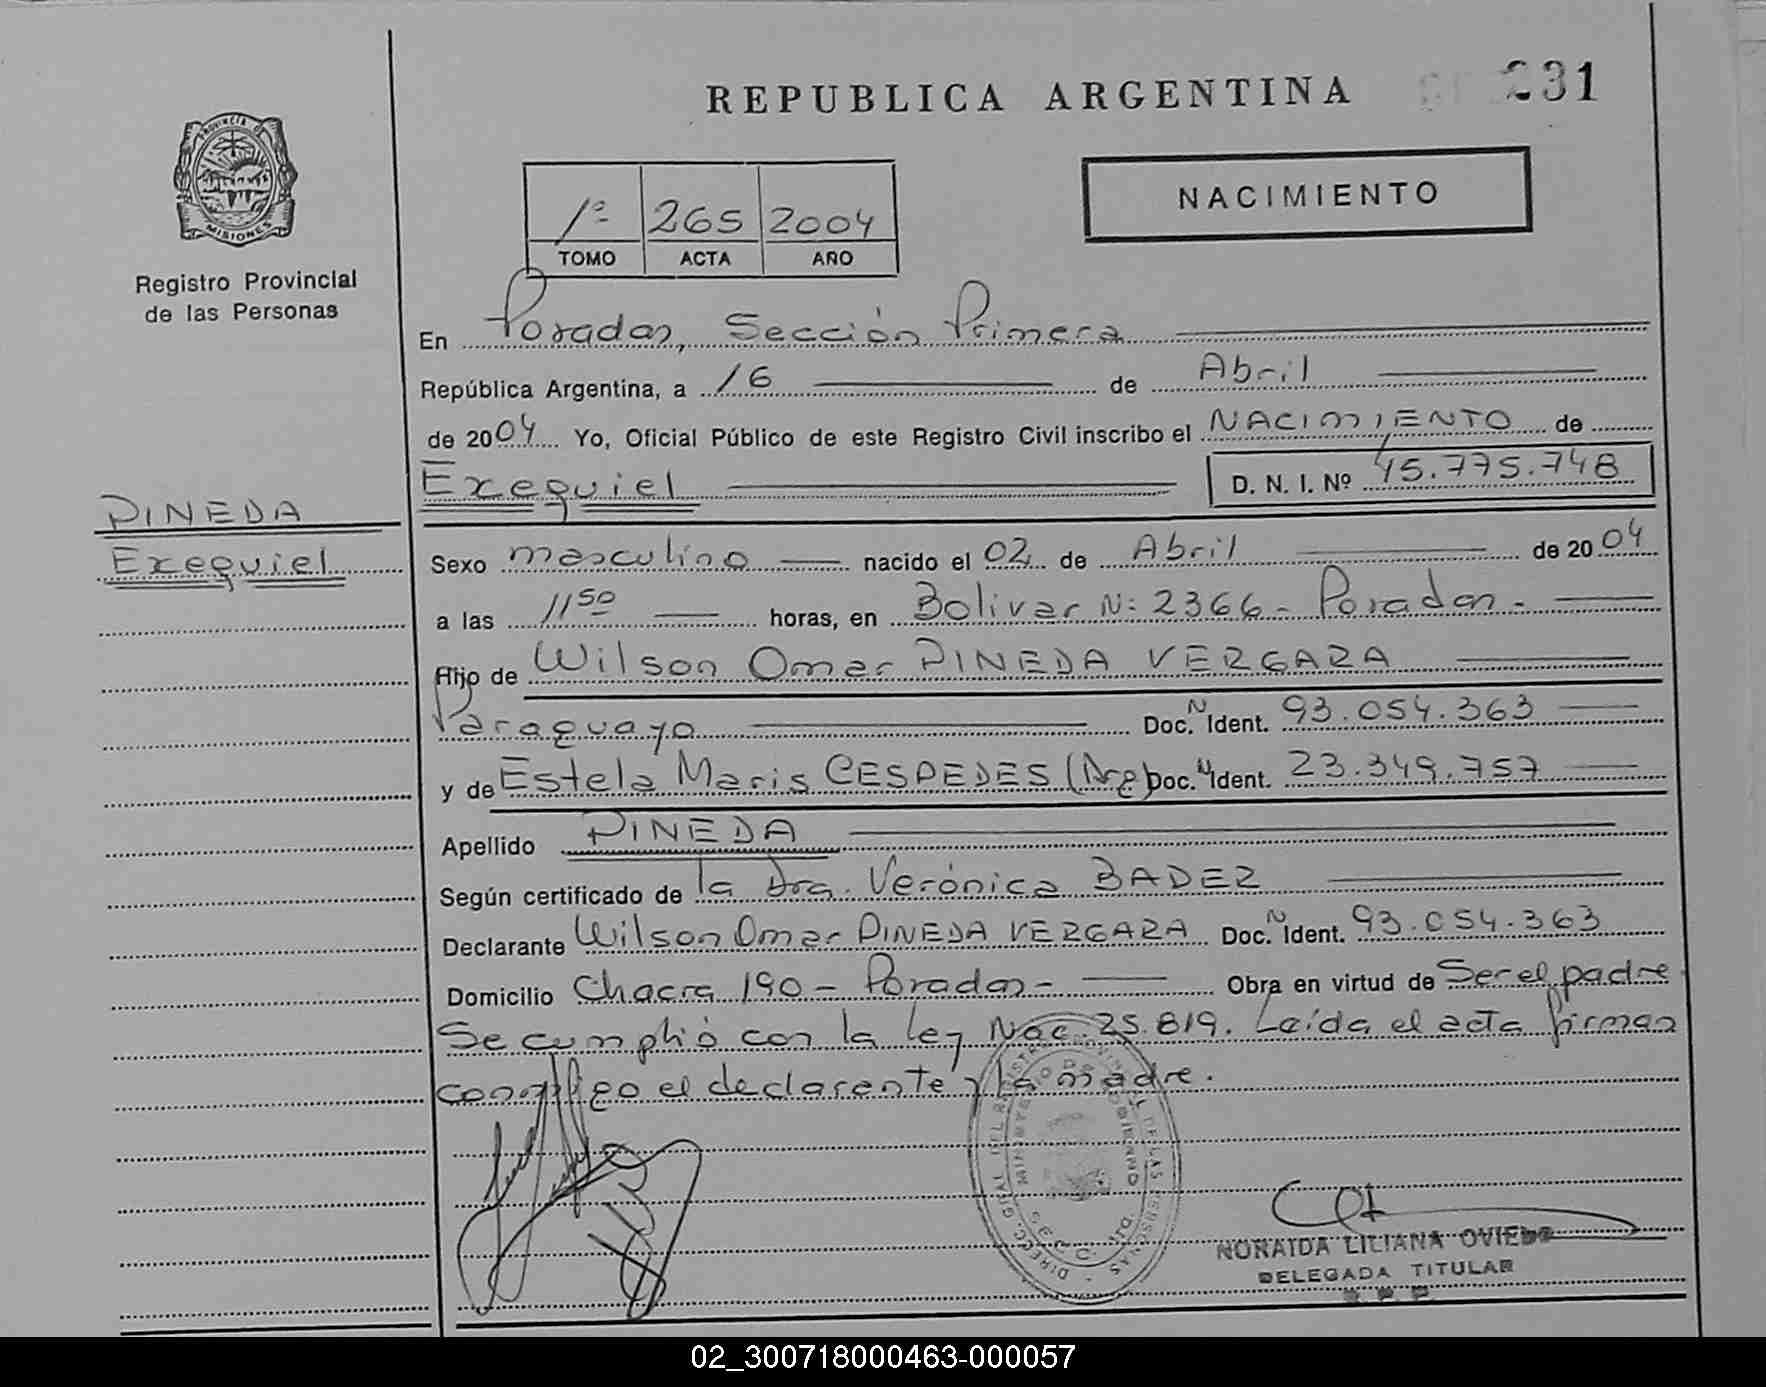 REPUBLICA ARGENTINA
231
PROVINCIA DE
MISIONES
Registro Provincial
de las Personas
NACIMIENTO
1º 265 2004
TOMO ACTA AÑO
En Posadas, Sección Primera
República Argentina, a 16 de Abril
de 2004 Yo, Oficial Público de este Registro Civil inscribo el NACIMIENTO de
Exequiel D. N. I. Nº 45.775.748
PINEDA
Exequiel
Sexo masculino nacido el 02 de Abril de 2004
a las 11 50 horas, en Bolivar Nº 2366 - Posadas -
Hijo de Wilson Omar PINEDA VERGARA
Paraguayo Doc. N Ident. 93.054.363
y de Estela Maris CESPEDES (Arg) Doc. N Ident. 23.349.757
Apellido PINEDA
Según certificado de la Dra. Verónica BADEZ
Declarante Wilson Omar PINEDA VERGARA Doc. N Ident. 93.054.363
Domicilio Chacra 190 - Posadas - Obra en virtud de Ser el padre.
Se cumplió con la ley Nac. 25.819. Leída el acta firman
conmigo el declarante y la madre.
NORAIDA LILIANA OVIEDO
DELEGADA TITULAR
R. P. P.
02_300718000463-000057